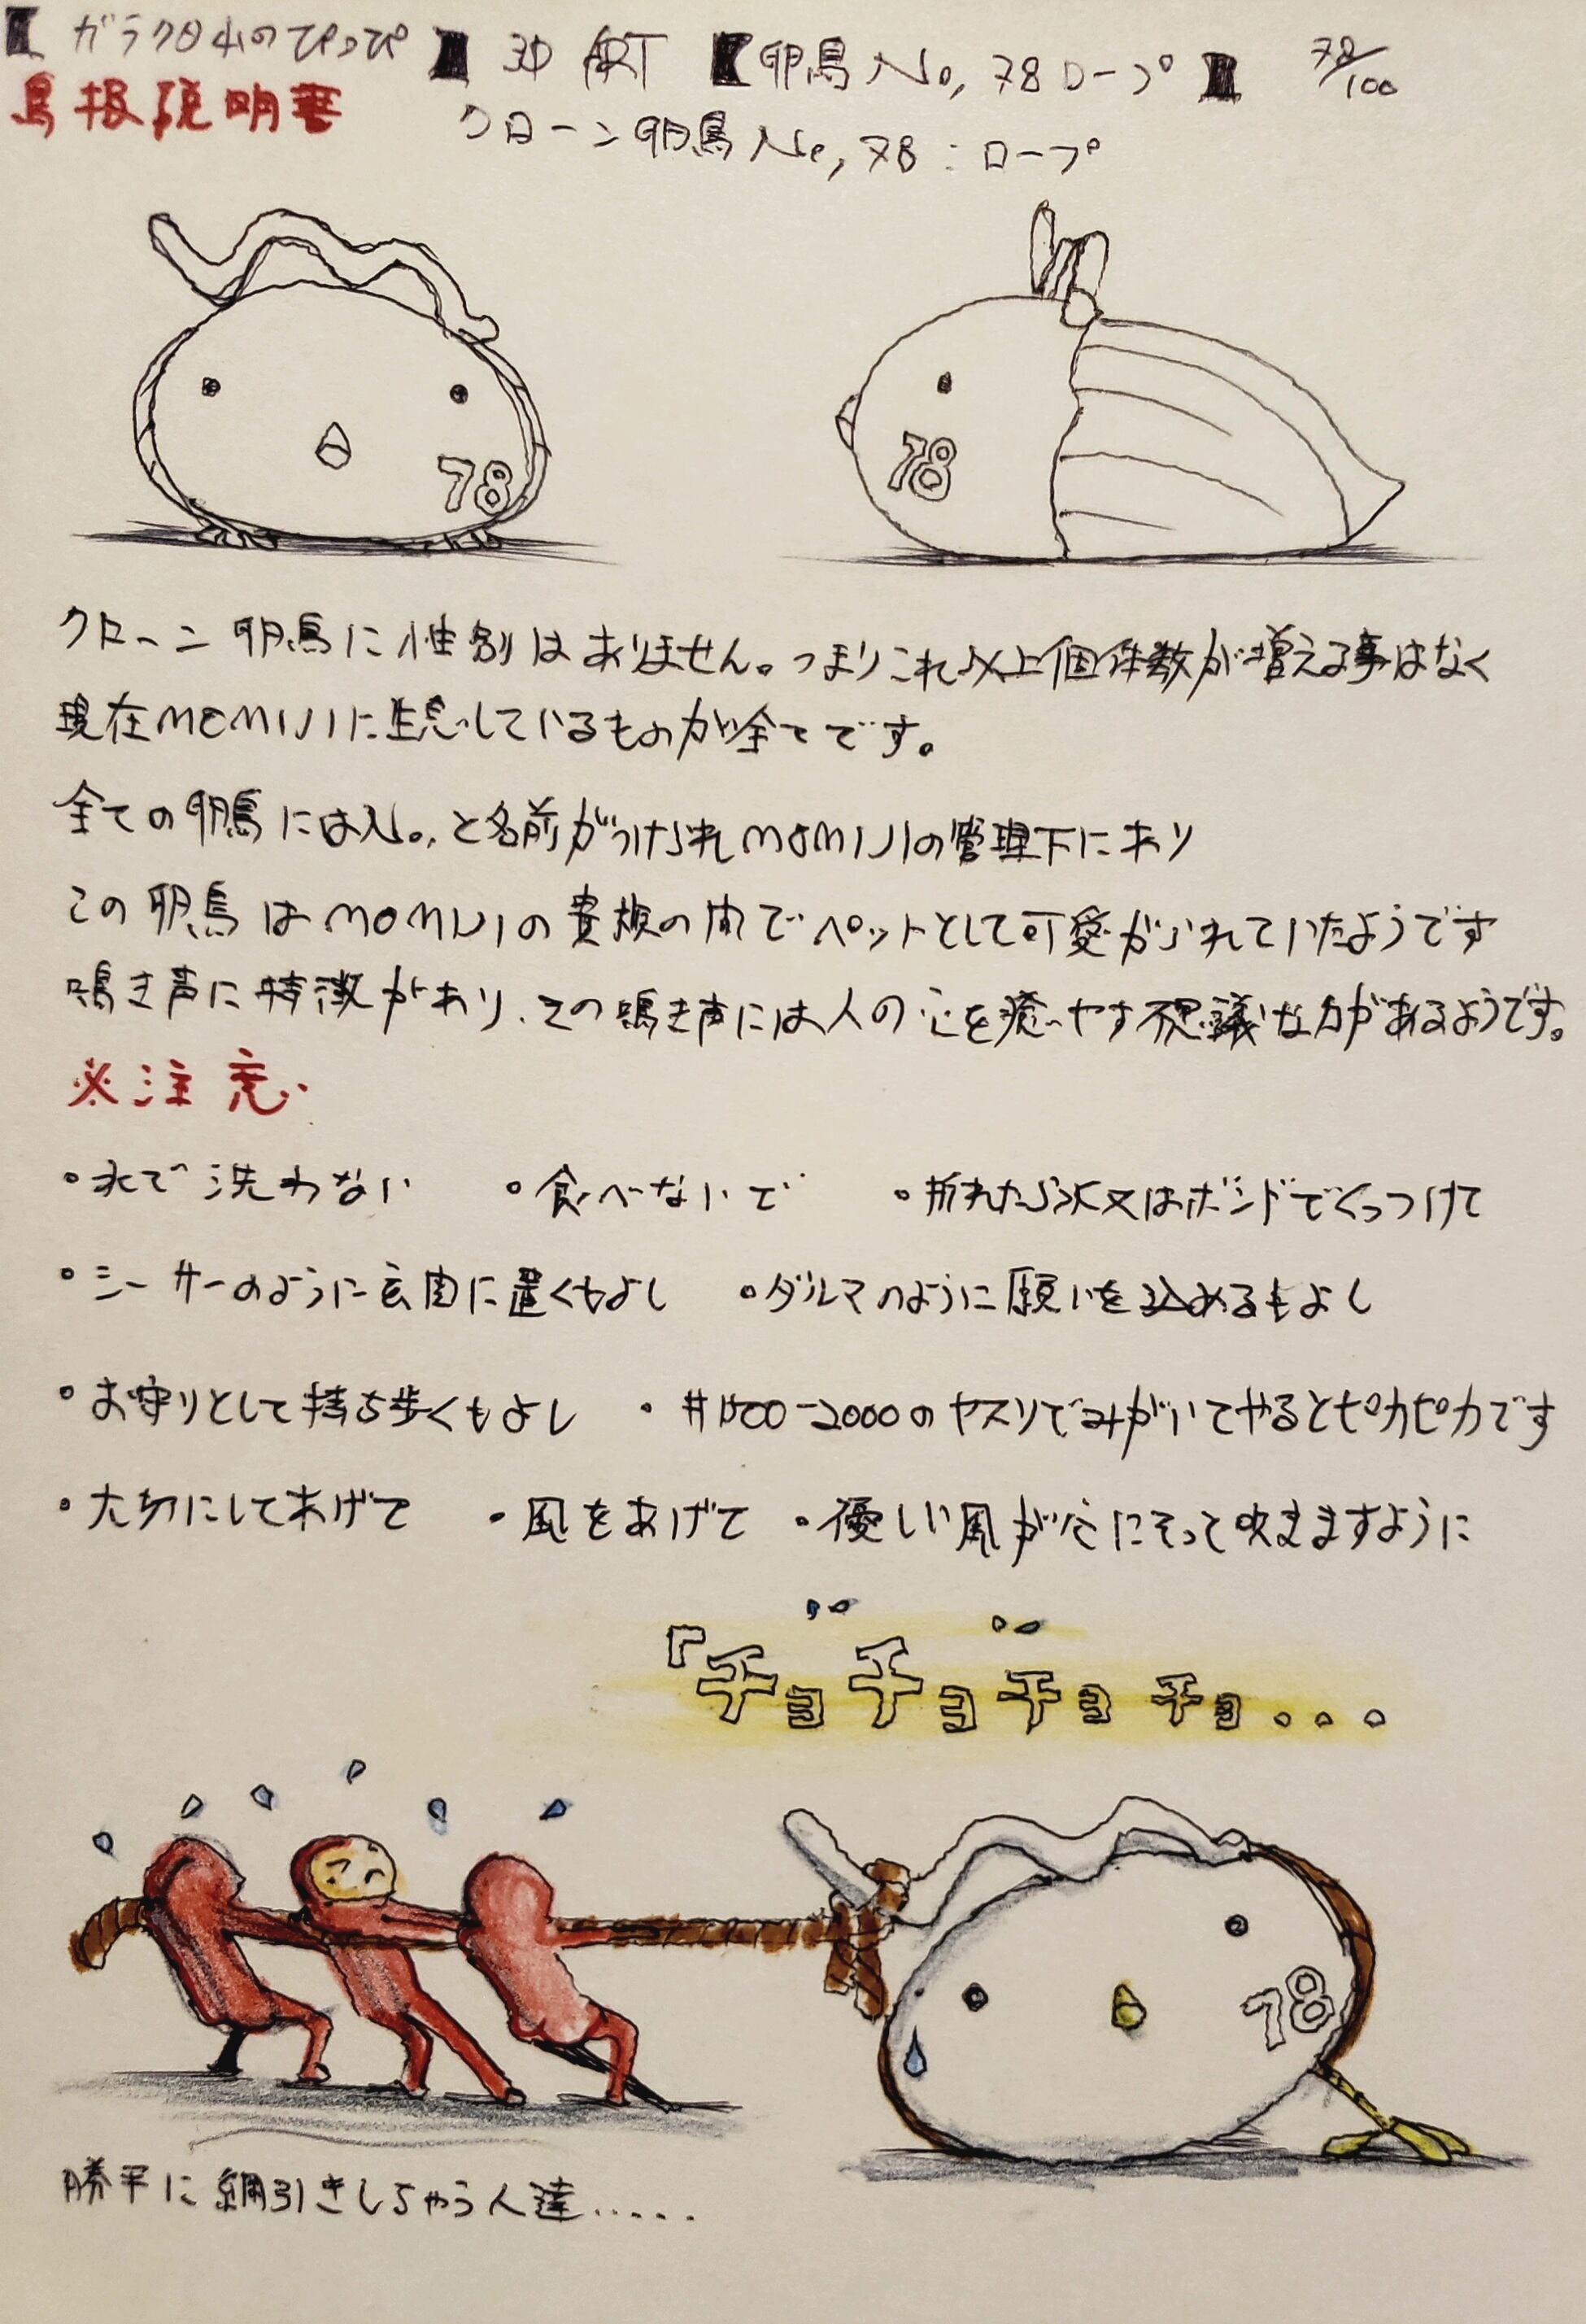 【ガラク日山のぴっぴ】 3D ART 【卵鳥No,78ロープ】 78/100
鳥扱説明書 クローン卵鳥No,78:ロープ
78
78
クローン卵鳥に性別はありません。つまりこれ以上個体数が増える事はなく
現在MOMIJIに生息しているものが全てです。
全ての卵鳥にはNo,と名前がつけられMOMIJIの管理下にあり
この卵鳥はMOMIJIの貴族の間でペットとして可愛がられていたようです
鳴き声に特徴があり、その鳴き声には人の心を癒やす不思議な力があるようです。
※注意
・水で洗わない ・食べないで ・折れたら水又はボンドでくっつけて
・シーサーのように玄関に置くもよし ・ダルマのように願いを込めるもよし
・お守りとして持ち歩くもよし ・#1500-2000のヤスリでみがいてやるとピカピカです
・大切にしてあげて ・風をあげて ・優しい風が心にそって吹きますように
『チョチョチョチョ...
78
勝手に綱引きしちゃう人達.....